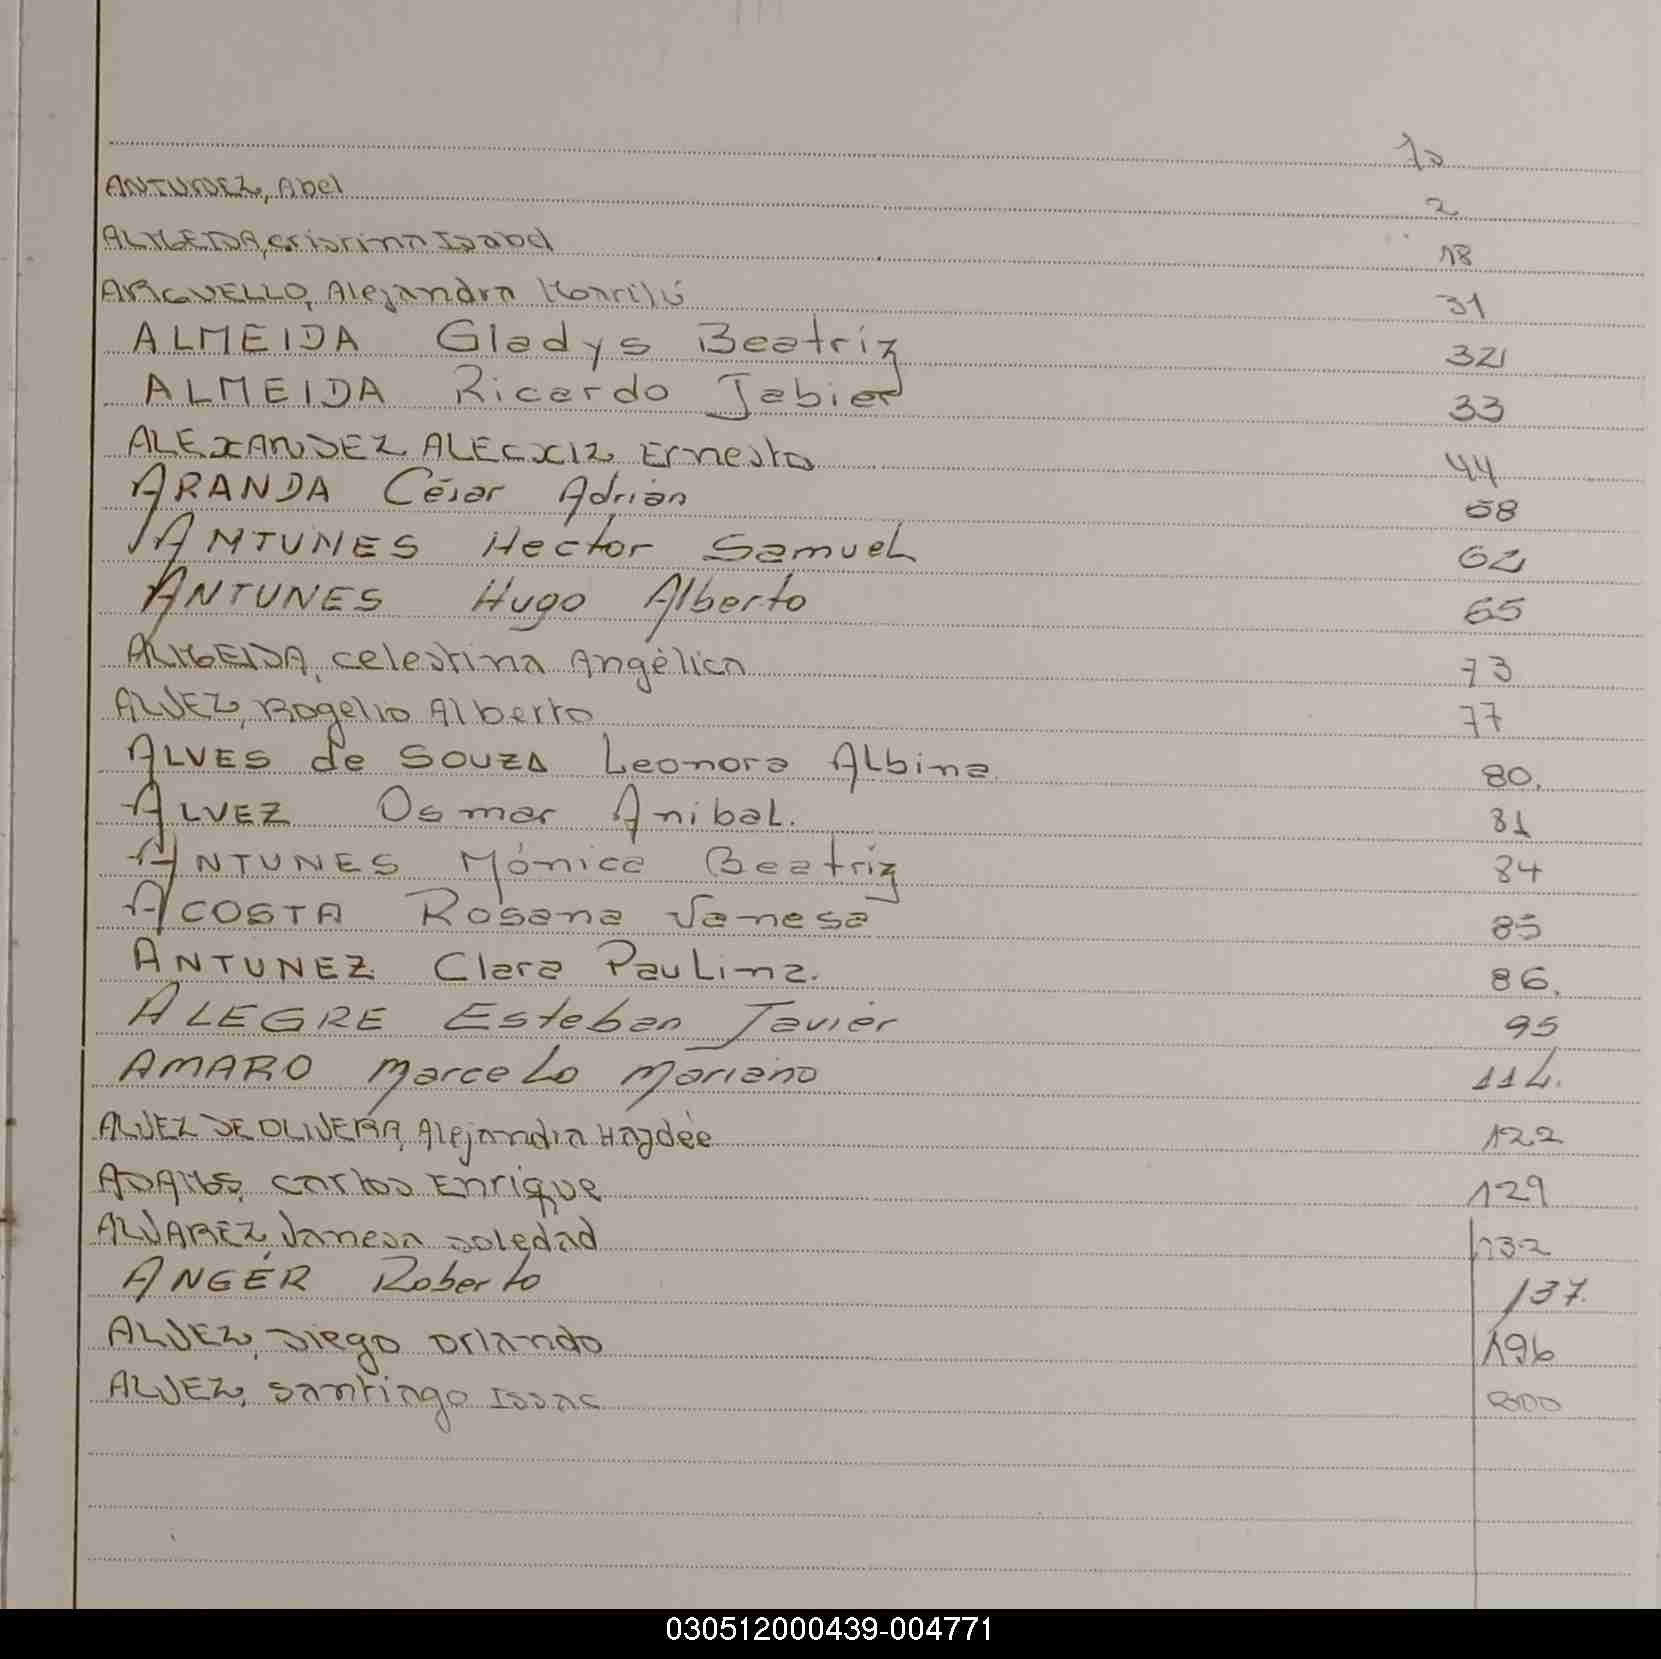 1º
ANTUNEZ, Abel 2
ALMEIDA, Cristina Isabel 18
ARGUELLO, Alejandra Marilú 31
ALMEIDA Gladys Beatriz 32
ALMEIDA Ricardo Jabier 33
ALEXANDEZ ALECXIZ Ernesto 44
ARANDA César Adrián 58
ANTUNES Hector Samuel 62
ANTUNES Hugo Alberto 65
ALMEIDA, Celestina Angélica 73
ALVEZ, Rogelio Alberto 77
ALVES de SOUZA Leonora Albina. 80.
ALVEZ Osmar Anibal. 81
ANTUNES Mónica Beatriz 84
ACOSTA Rosana Vanesa 85
ANTUNEZ Clara Paulina. 86.
ALEGRE Esteban Javier 95
AMARO Marcelo Mariano 114.
ALVEZ DE OLIVERA, Alejandra Haydée 122
ADAMS, Carlos Enrique 129
ALVAREZ, Vanesa Soledad 132
ANGER Roberto 137.
ALVEZ, Diego Orlando 196
ALVEZ, Santiago Isaac 200
030512000439-004771